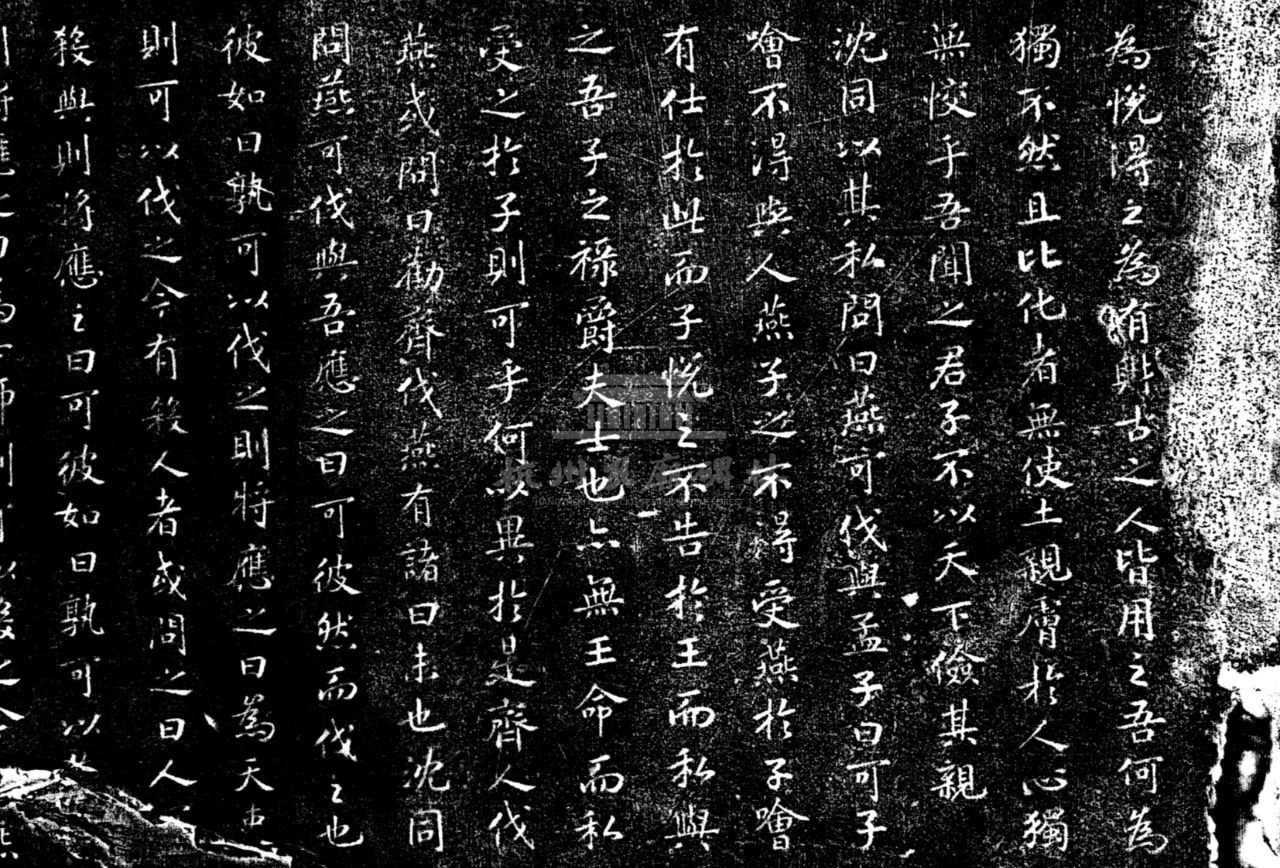 為悅得之為有財古之人皆用之吾何為
獨不然且比化者無使土親膚於人心獨
無恔乎吾聞之君子不以天下儉其親
沈同以其私問曰燕可伐與孟子曰可子
噲不得與人燕子之不得受燕於子噲
有仕於此而子悅之不告於王而私與
之吾子之祿爵夫士也亦無王命而私
受之於子則可乎何以異於是齊人伐
燕或問曰勸齊伐燕有諸曰未也沈同
問燕可伐與吾應之曰可彼然而伐之也
彼如曰孰可以伐之則將應之曰為天
則可以伐之今有殺人者或問之曰人
殺與則將應之曰可彼如曰孰可以
則將應之曰為士師則可以殺之今
杭州